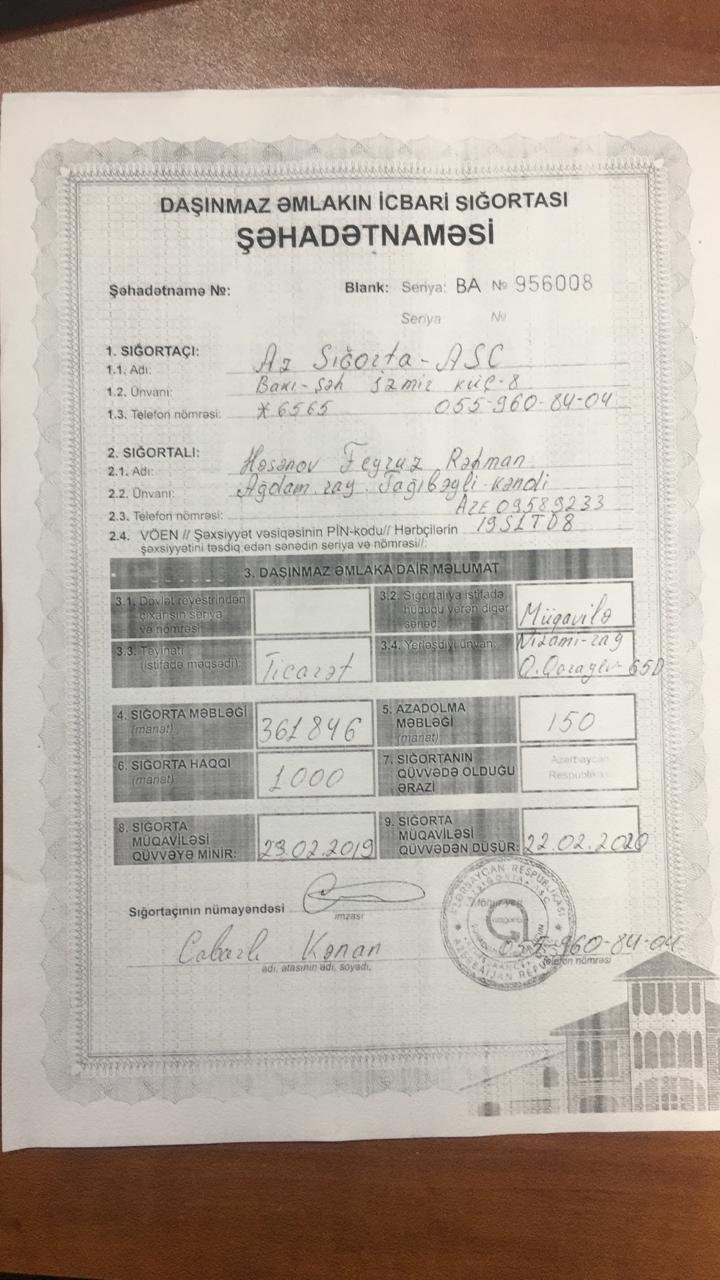 DAŞINMAZ ƏMLAKIN İCBARİ SIĞORTASI
ŞƏHADƏTNAMƏSİ
Şəhadətnamə №: Blank: Seriya: BA № 956008
Seriya №
1. SIĞORTAÇI:
1.1. Adı: Az Sığorta-ASC
1.2. Ünvanı: Bakı-şəh İzmir küç-8
1.3. Telefon nömrəsi: *6565 055-960-84-04
2. SIĞORTALI:
2.1. Adı: Həsənov Feyruz Rəhman
2.2. Ünvanı: Ağdam.ray. Tağıbəyli-kəndi
2.3. Telefon nömrəsi: AZE 09589233
2.4. VÖEN // Şəxsiyyət vəsiqəsinin PİN-kodu// Hərbçilərin 19S1TD8
şəxsiyyətini təsdiq edən sənədin seriya və nömrəsi//:
3. DAŞINMAZ ƏMLAKA DAİR MƏLUMAT
3.1. Dövlət reyestrindən çıxarışın seriya və nömrəsi:
3.2. Sığortalıya istifadə hüququ verən digər sənəd: Müqavilə
3.3. Təyinatı (istifadə məqsədi): Ticarət
3.4. Yerləşdiyi ünvan: Nizami-ray Q.Qarayev-65D
4. SIĞORTA MƏBLƏĞİ (manat) 361846
5. AZADOLMA MƏBLƏĞİ (manat) 150
6. SIĞORTA HAQQI (manat) 1000
7. SIĞORTANIN QÜVVƏDƏ OLDUĞU ƏRAZİ Azərbaycan Respublikası
8. SIĞORTA MÜQAVİLƏSİ QÜVVƏYƏ MİNİR: 23.02.2019
9. SIĞORTA MÜQAVİLƏSİ QÜVVƏDƏN DÜŞÜR: 22.02.2020
Sığortaçının nümayəndəsi
imzası
Cabarlı Kənan 055-960-84-04
adı, atasının adı, soyadı, telefon nömrəsi